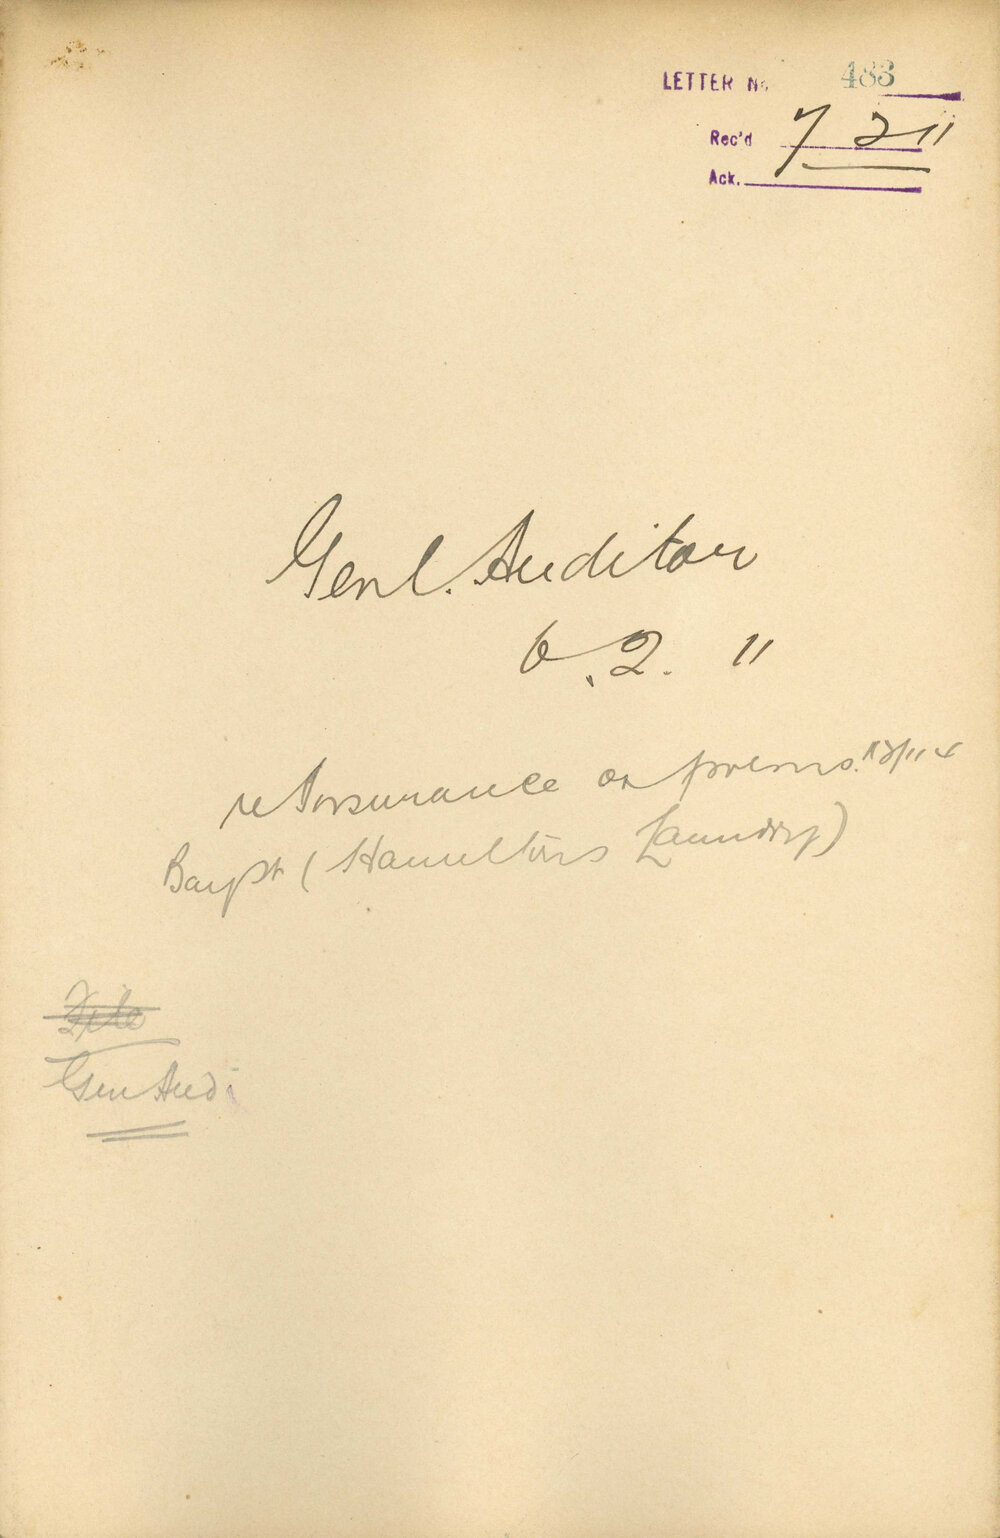 LETTER No 483
Rec'd 7 2 11
Ack.
Genl. Auditor
6. 2. 11
re Insurance on prems.
Bay St (Hamiltons Laundry)
File
Gen Audi